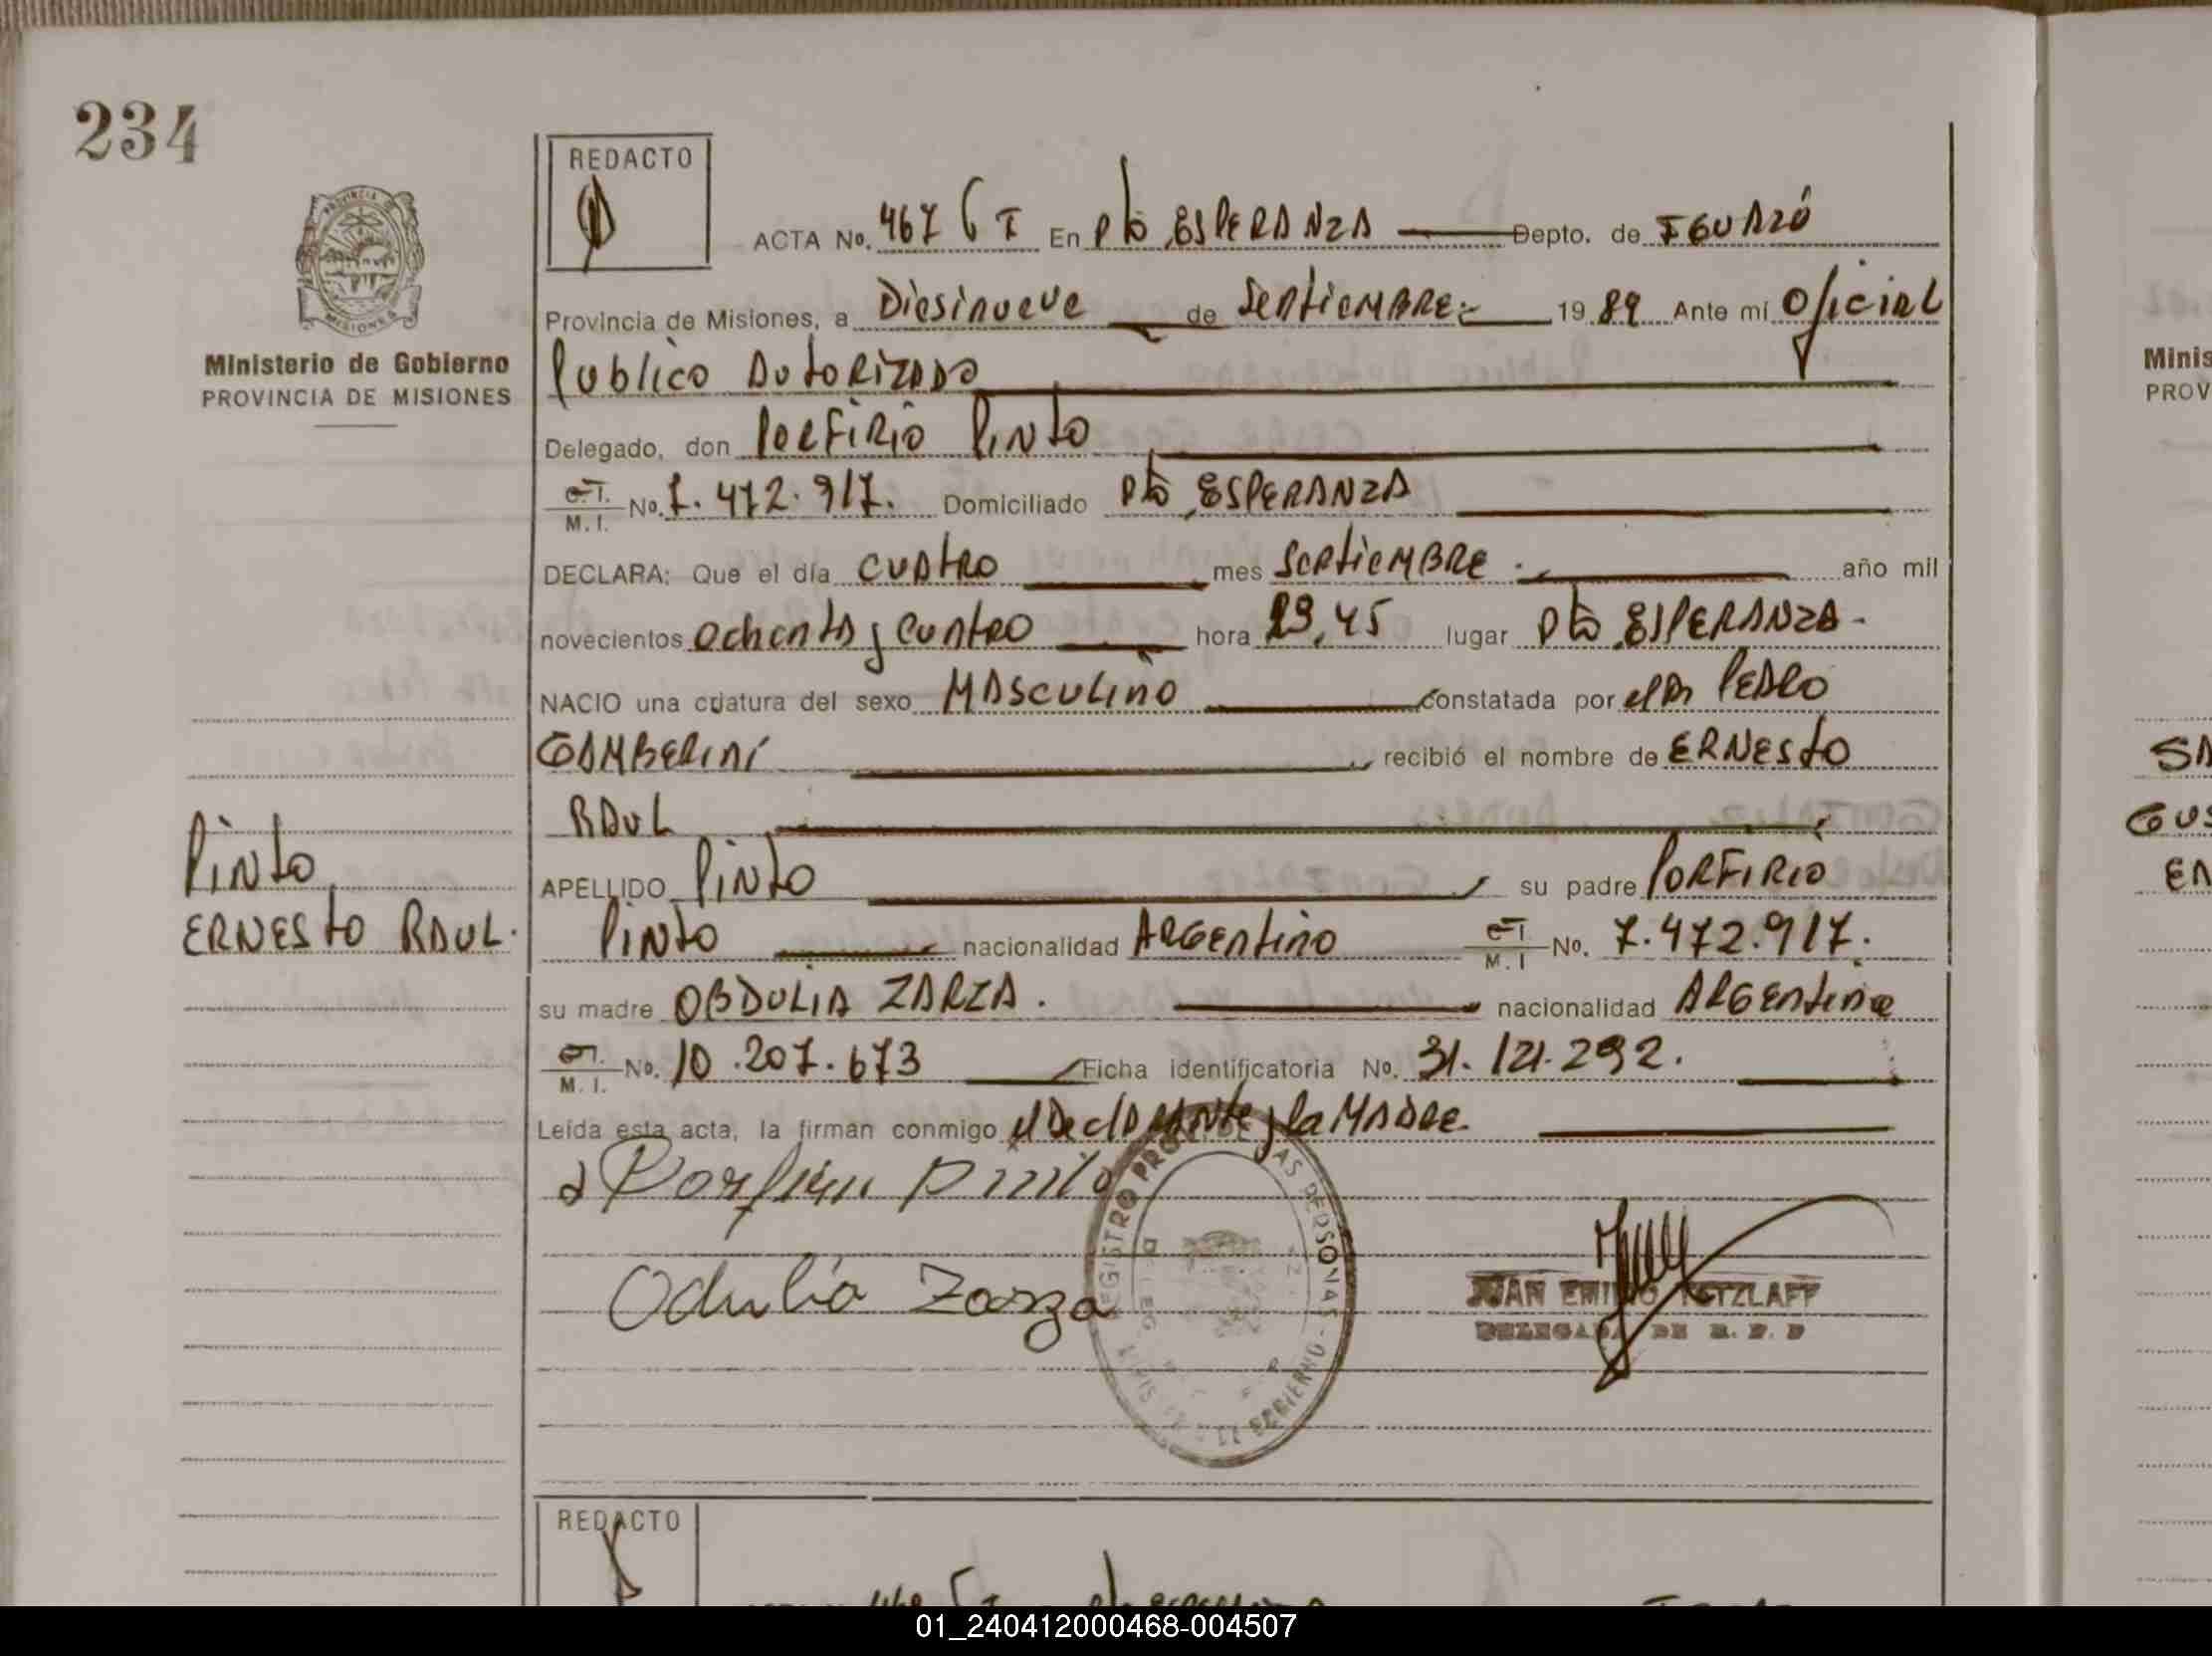 234
REDACTO
ACTA No. 467 T I En Pto ESPERANZA Depto. de IGUAZÚ
Provincia de Misiones, a Diesinueve de Septiembre 1984 Ante mi Oficial
Ministerio de Gobierno
PROVINCIA DE MISIONES
Publico Autorizado
Delegado, don Porfirio Pinto
C.I. M.I. No. 7.472.917. Domiciliado Pto ESPERANZA
DECLARA: Que el día cuatro mes Septiembre año mil
novecientos ochenta y cuatro hora 23,45 lugar Pto ESPERANZA.
NACIO una criatura del sexo MASCULINO constatada por el Dr PEDRO
GAMBERINI recibió el nombre de ERNESTO
RAUL
APELLIDO Pinto su padre PORFIRIO
Pinto nacionalidad ARGENtiNO C.I. M.I No. 7.472.917.
Pinto
ERNESTO RAUL.
su madre OBDULIA ZARZA. nacionalidad ARGENtina
C.I. M.I. No. 10.207.673 Ficha identificatoria No. 31.121.292.
Leída esta acta, la firman conmigo el Declarante y la MADRE.
Porfirio Pinto
Odulia Zarza
REGISTRO PROV. DE LAS PERSONAS
JUAN EMILIO RETZLAFF
DELEGADO DE R. P. P
REDACTO
SA
GUS
Minis
PROV
01_240412000468-004507